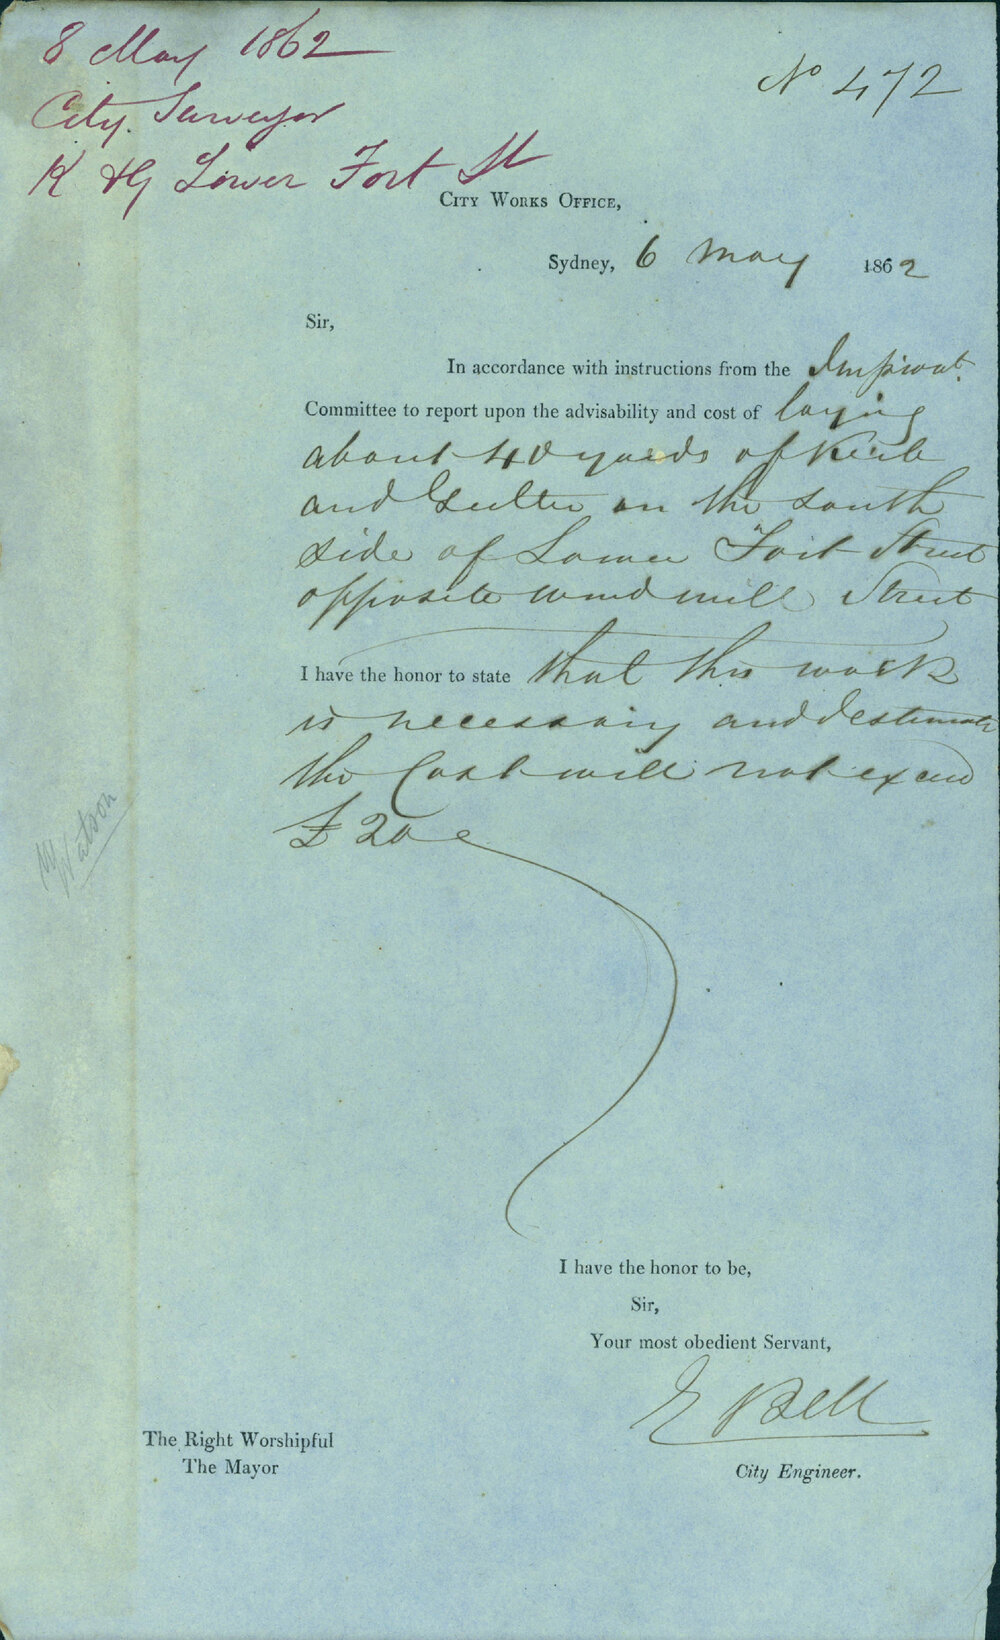 8 May 1862
City Surveyor
K & G Lower Fort St
No 472
CITY WORKS OFFICE,
Sydney, 6 May 1862
Sir,
In accordance with instructions from the Improvt.
Committee to report upon the advisability and cost of laying
about 40 yards of Kerb
and Gutter on the south
side of Lower Fort Street
opposite Windmill Street
I have the honor to state that this work
is necessary and I estimate
the Cost will not exceed
£20
Watson
I have the honor to be,
Sir,
Your most obedient Servant,
E Bell
City Engineer.
The Right Worshipful
The Mayor